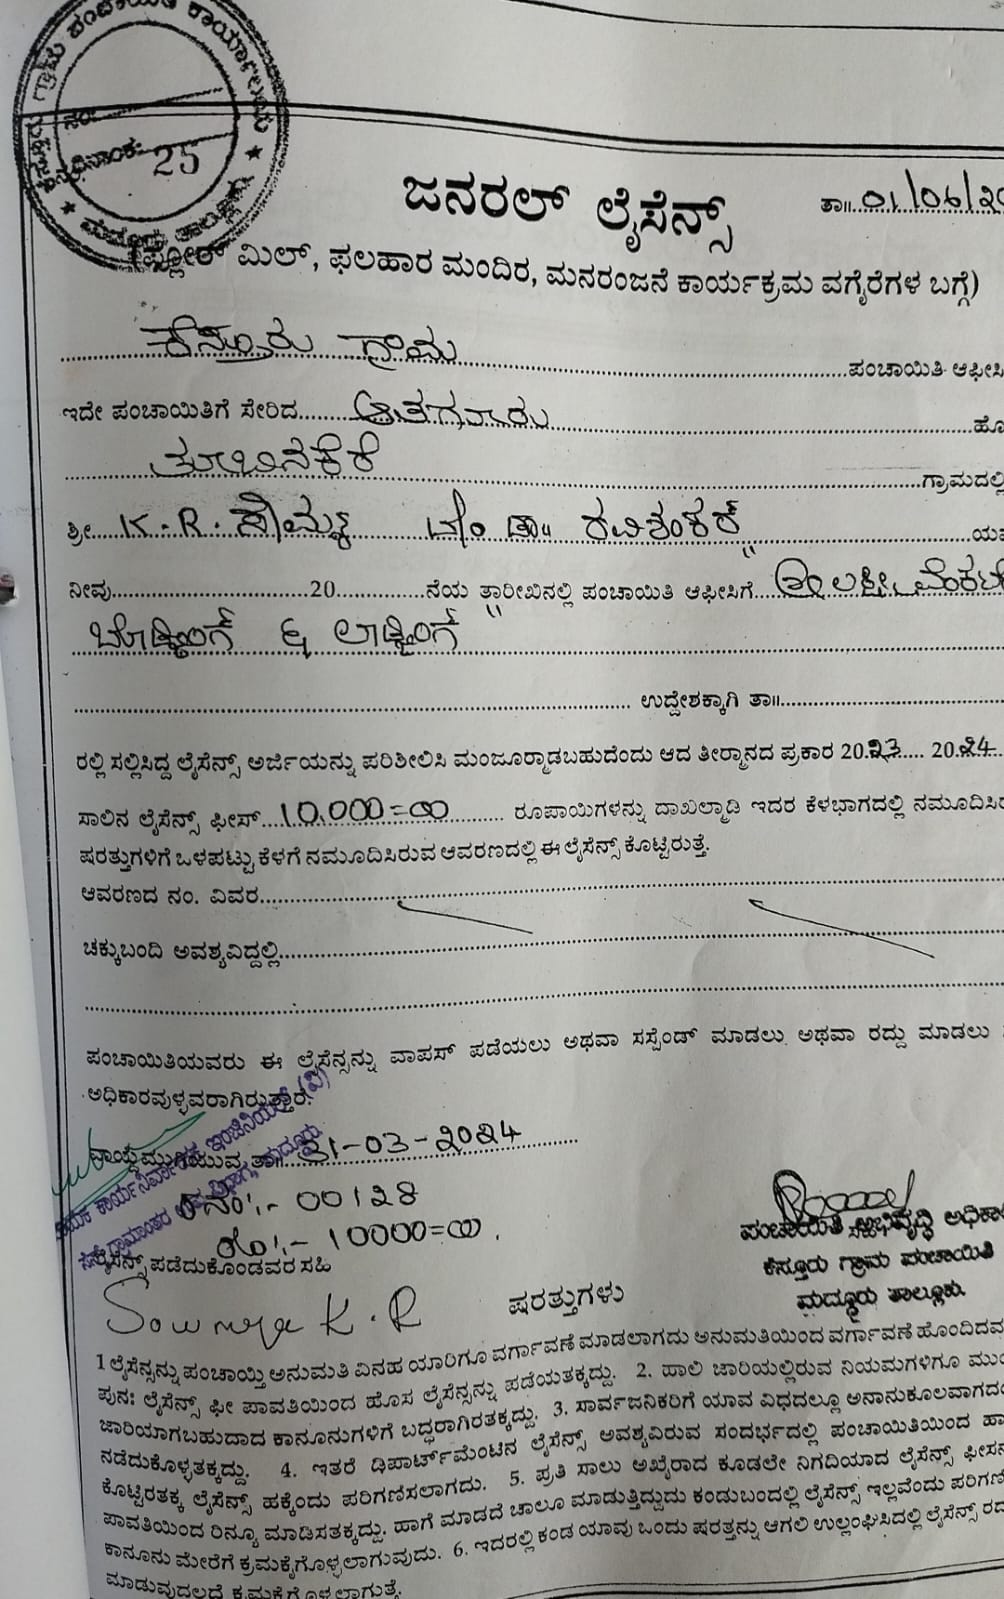 ಗ್ರಾಮ ಪಂಚಾಯಿತಿ ಕಾರ್ಯಾಲಯ
ನಂ:
ದಿನಾಂಕ:
25
ಜನರಲ್ ಲೈಸೆನ್ಸ್
ತಾ॥ 01/06/20
(ಫ್ಲೋರ್ ಮಿಲ್, ಫಲಹಾರ ಮಂದಿರ, ಮನರಂಜನೆ ಕಾರ್ಯಕ್ರಮ ವಗೈರೆಗಳ ಬಗ್ಗೆ)
ಕೆಸ್ತೂರು ಗ್ರಾಮ ಪಂಚಾಯಿತಿ ಆಫೀಸಿ
ಇದೇ ಪಂಚಾಯಿತಿಗೆ ಸೇರಿದ ಆತಗೂರು ಹೋ
ತೂಬಿನಕೆರೆ ಗ್ರಾಮದಲ್ಲಿ
ಶ್ರೀ K.R. ಸೌಮ್ಯ ರವಿಶಂಕರ್ ಯವ
ನೀವು 20 ನೆಯ ತ್ತಾರೀಖಿನಲ್ಲಿ ಪಂಚಾಯಿತಿ ಆಫೀಸಿಗೆ ಶ್ರೀ ಲಕ್ಷ್ಮೀ ವೆಂಕಟೇ
ಬೋರ್ಡಿಂಗ್ & ಲಾಡ್ಜಿಂಗ್
ಉದ್ದೇಶಕ್ಕಾಗಿ ತಾ॥
ರಲ್ಲಿ ಸಲ್ಲಿಸಿದ್ದ ಲೈಸೆನ್ಸ್ ಅರ್ಜಿಯನ್ನು ಪರಿಶೀಲಿಸಿ ಮಂಜೂರ್‍ಮಾಡಬಹುದೆಂದು ಆದ ತೀರ್‍ಮಾನದ ಪ್ರಕಾರ 20.23.... 20.24
ಸಾಲಿನ ಲೈಸೆನ್ಸ್ ಫೀಸ್ 10,000=00 ರೂಪಾಯಿಗಳನ್ನು ದಾಖಲ್ಮಾಡಿ ಇದರ ಕೆಳಭಾಗದಲ್ಲಿ ನಮೂದಿಸಿರ
ಷರತ್ತುಗಳಿಗೆ ಒಳಪಟ್ಟು ಕೆಳಗೆ ನಮೂದಿಸಿರುವ ಆವರಣದಲ್ಲಿ ಈ ಲೈಸೆನ್ಸ್ ಕೊಟ್ಟಿರುತ್ತೆ.
ಆವರಣದ ನಂ. ವಿವರ
ಚಕ್ಕುಬಂದಿ ಅವಶ್ಯವಿದ್ದಲ್ಲಿ
ಪಂಚಾಯಿತಿಯವರು ಈ ಲೈಸೆನ್ಸನ್ನು ವಾಪಸ್ ಪಡೆಯಲು ಅಥವಾ ಸಸ್ಪೆಂಡ್ ಮಾಡಲು ಅಥವಾ ರದ್ದು ಮಾಡಲು
ಅಧಿಕಾರವುಳ್ಳವರಾಗಿರುತ್ತಾರೆ.
ವಾಯ್ದೆ ಮುಗಿಯುವ ತಾ॥ 31-03-2024
ನಂ:- 00128
ರೂ:- 10000=00.
ಲೈಸೆನ್ಸ್ ಪಡೆದುಕೊಂಡವರ ಸಹಿ
Sowmya K.R
ಪಂಚಾಯಿತಿ ಅಭಿವೃದ್ಧಿ ಅಧಿಕಾ
ಕೆಸ್ತೂರು ಗ್ರಾಮ ಪಂಚಾಯಿತಿ
ಮದ್ದೂರು ತಾಲ್ಲೂಕು.
ಷರತ್ತುಗಳು
1 ಲೈಸೆನ್ಸನ್ನು ಪಂಚಾಯ್ತಿ ಅನುಮತಿ ವಿನಹ ಯಾರಿಗೂ ವರ್ಗಾವಣೆ ಮಾಡಲಾಗದು ಅನುಮತಿಯಿಂದ ವರ್ಗಾವಣೆ ಹೊಂದಿದವ
ಪುನಃ ಲೈಸೆನ್ಸ್ ಫೀ ಪಾವತಿಯಿಂದ ಹೊಸ ಲೈಸೆನ್ಸನ್ನು ಪಡೆಯತಕ್ಕದ್ದು. 2. ಹಾಲಿ ಜಾರಿಯಲ್ಲಿರುವ ನಿಯಮಗಳಿಗೂ ಮುಂ
ಜಾರಿಯಾಗಬಹುದಾದ ಕಾನೂನುಗಳಿಗೆ ಬದ್ಧರಾಗಿರತಕ್ಕದ್ದು. 3. ಸಾರ್ವಜನಿಕರಿಗೆ ಯಾವ ವಿಧದಲ್ಲೂ ಅನಾನುಕೂಲವಾಗದಂ
ನಡೆದುಕೊಳ್ಳತಕ್ಕದ್ದು. 4. ಇತರೆ ಡಿಪಾರ್ಟ್‌ಮೆಂಟಿನ ಲೈಸೆನ್ಸ್ ಅವಶ್ಯವಿರುವ ಸಂದರ್ಭದಲ್ಲಿ ಪಂಚಾಯಿತಿಯಿಂದ ಹಾ
ಕೊಟ್ಟಿರತಕ್ಕ ಲೈಸೆನ್ಸ್ ಹಕ್ಕೆಂದು ಪರಿಗಣಿಸಲಾಗದು. 5. ಪ್ರತಿ ಸಾಲು ಅಖೈರಾದ ಕೂಡಲೇ ನಿಗದಿಯಾದ ಲೈಸೆನ್ಸ್ ಫೀಸನ
ಪಾವತಿಯಿಂದ ರಿನ್ಯೂ ಮಾಡಿಸತಕ್ಕದ್ದು. ಹಾಗೆ ಮಾಡದೆ ಚಾಲೂ ಮಾಡುತ್ತಿದ್ದುದು ಕಂಡುಬಂದಲ್ಲಿ ಲೈಸೆನ್ಸ್ ಇಲ್ಲವೆಂದು ಪರಿಗಣಿ
ಕಾನೂನು ಮೇರೆಗೆ ಕ್ರಮಕೈಗೊಳ್ಳಲಾಗುವುದು. 6. ಇದರಲ್ಲಿ ಕಂಡ ಯಾವು ಒಂದು ಷರತ್ತನ್ನು ಆಗಲಿ ಉಲ್ಲಂಘಿಸಿದಲ್ಲಿ ಲೈಸೆನ್ಸ್ ರದ
ಮಾಡುವುದಲ್ಲದೆ ಕ್ರಮಕೈಗೊಳ್ಳಲಾಗುತ್ತೆ.